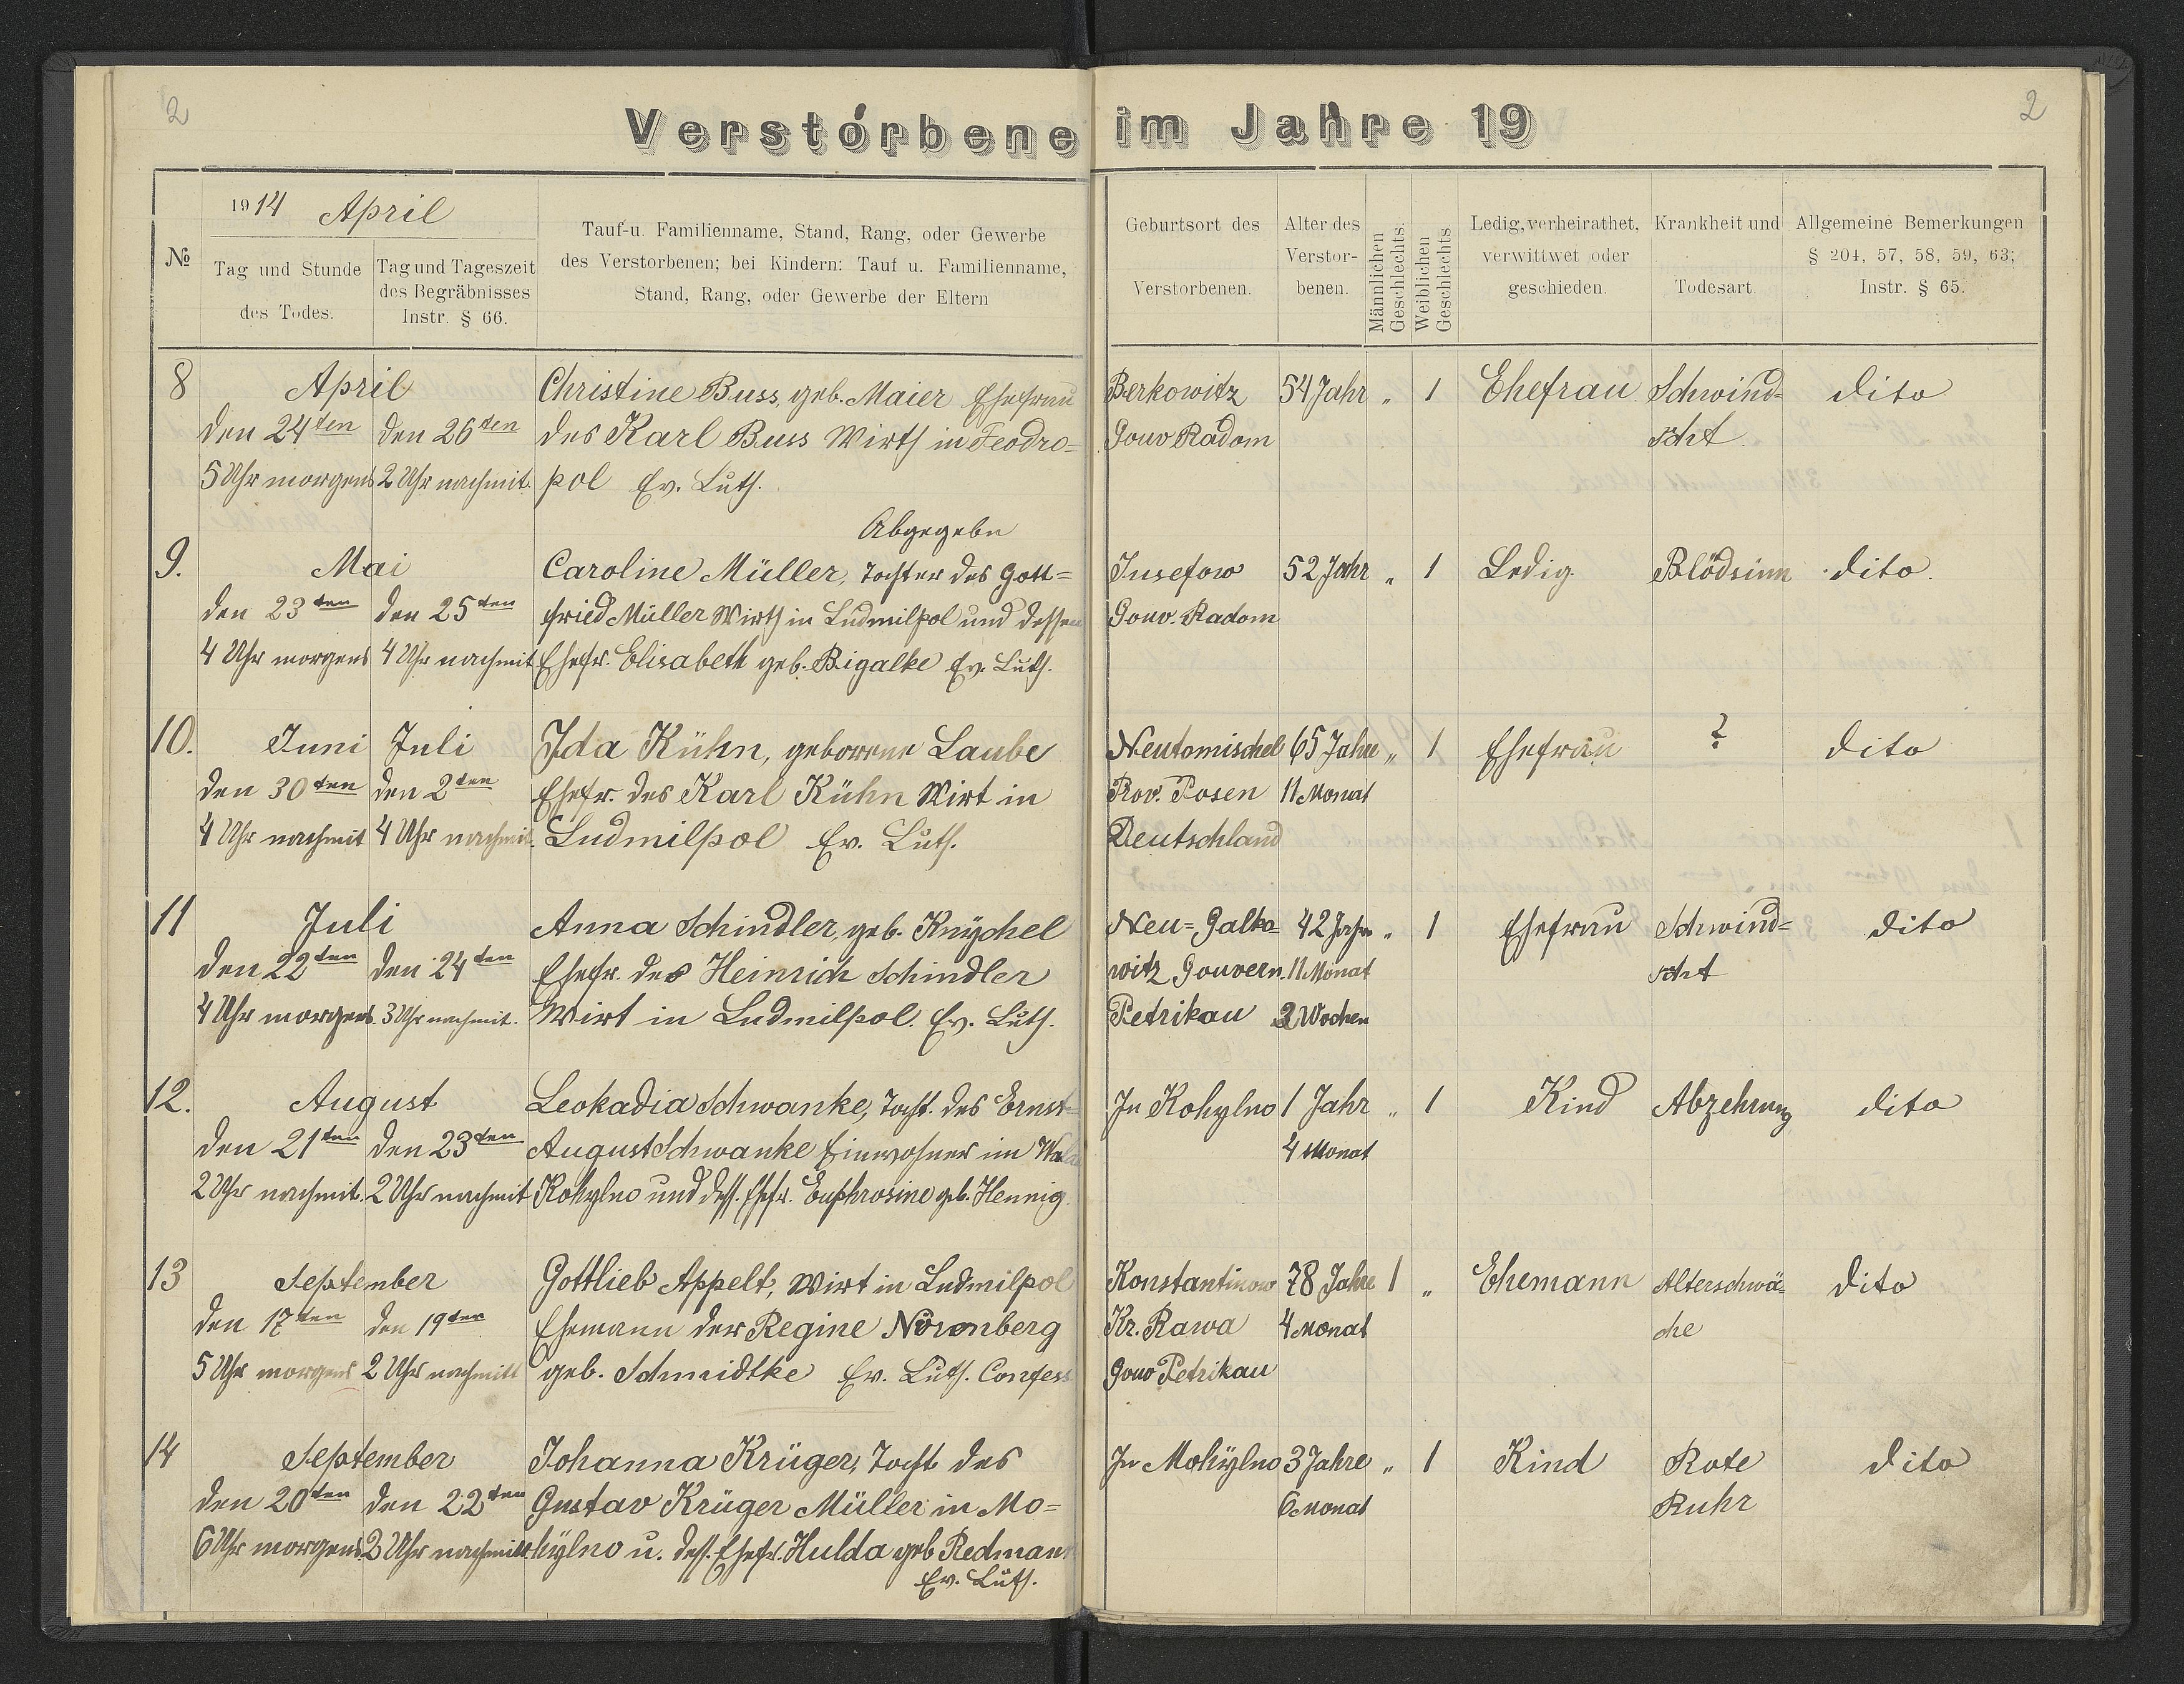 2
2
Verstorbene im Jahre 19
№
1914 April
Tag und Stunde
des Todes.
Tag und Tageszeit
des Begräbnisses
Instr. § 66.
Tauf-u. Familienname, Stand, Rang, oder Gewerbe
des Verstorbenen; bei Kindern: Tauf u. Familienname,
Stand, Rang, oder Gewerbe der Eltern
Geburtsort des
Verstorbenen.
Alter des
Verstor-
benen.
Männlichen
Geschlechts.
Weiblichen
Geschlechts
Ledig, verheirathet,
verwittwet oder
geschieden.
Krankheit und
Todesart.
Allgemeine Bemerkungen
§ 204, 57, 58, 59, 63;
Instr. § 65.
8 April Christine Buss, geb. Maier Ehefrau Berkowitz 54 Jahr „ 1 Ehefrau Schwind- dito
den 24ten den 26ten des Karl Buss Wirth in Feodro= Gouv Radom scht.
5 Uhr morgens 2 Uhr nachmit. pol Ev. Luth.
Abgegebn
9. Mai Caroline Müller, Tochter des Gott= Jusefow 52 Jahr „ 1 Ledig. Blödsinn dito.
den 23ten den 25ten fried Müller Wirth in Ludmilpol und dessen Gouv. Radom
4 Uhr morgens 4 Uhr nachmit Ehefr. Elisabeth geb. Bigalke Ev. Luth.
10. Juni Juli Ida Kühn, geborene Laube Neutomischel 65 Jahre „ 1 Ehefrau ? dito
den 30ten den 2ten Ehefr. des Karl Kühn Wirt in Prov. Posen 11 Monat
4 Uhr nachmit 4 Uhr nachmit. Ludmilpol Ev. Luth. Deutschland
11 Juli Anna Schindler, geb. Knÿchel Neu=Galko= 42 Jahre „ 1 Ehefrau Schwind= dito
den 22ten den 24ten Ehefr. des Heinrich Schindler witz Gouvern. 11 Monat scht
4 Uhr morgens 3 Uhr nachmit. Wirt in Ludmilpol. Ev. Luth. Petrikau Wochen
12. August Leokadia Schwanke, Tocht. des Ernst= In Kohylno 1 Jahr „ 1 Kind Abzehrung dito
den 21ten den 23ten August Schwanke Einwohner im 4 Monat
2 Uhr nachmit. 2 Uhr nachmit Kohylno und dess. Ehefr. Euphrosine geb. Hennig.
13 September Gottlieb Appelt, Wirt in Ludmilpol Konstantinow 78 Jahre 1 „ Ehemann Alterschwä- dito
den 17ten den 19ten Ehemann der Regine Nörenberg Kr. Rawa 4 Monat che
5 Uhr morgens 2 Uhr nachmitt geb. Schmidtke Ev. Luth. Confess Gouv Petrikau
14 September Johanna Krüger, Tocht des In Mohÿlno 3 Jahre „ 1 Kind Rote dito
den 20ten den 22ten Gustav Krüger Müller in Mo= 6 Monat Ruhr
6 Uhr morgens 2 Uhr nachmitt. hÿlno u. dess. Ehefr. Hulda geb Redmann
Ev. Luth.